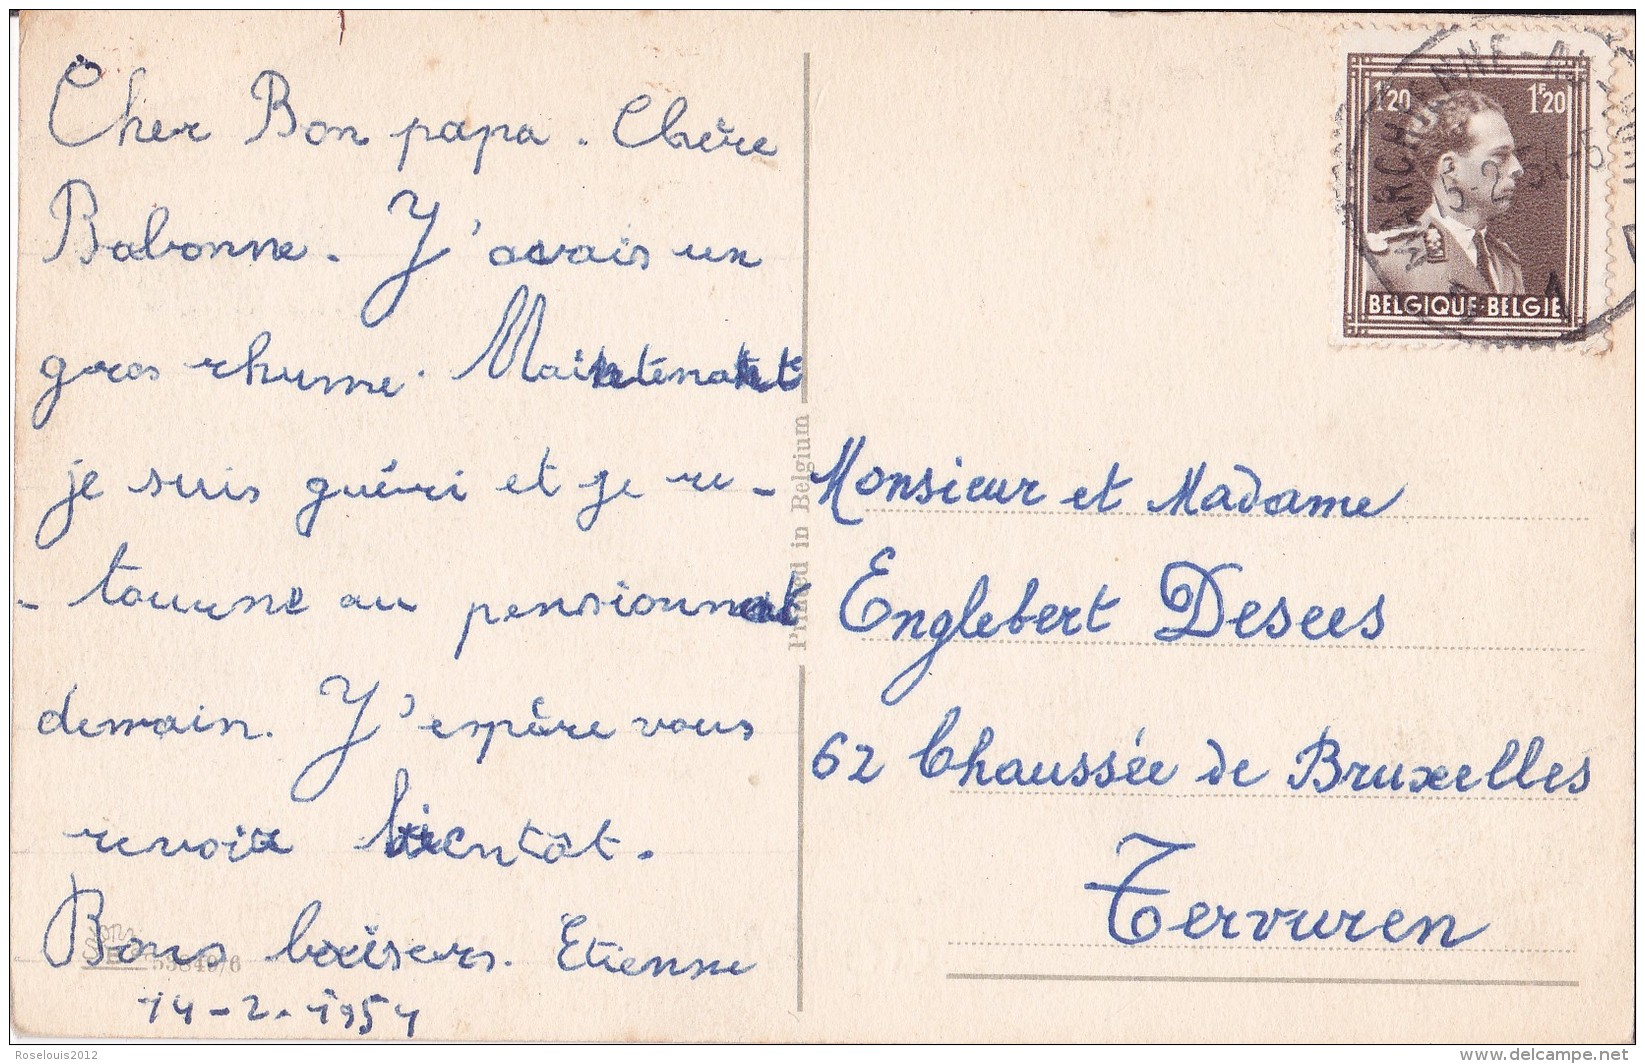 Cher Bon papa. Chère
Babonne. J'avais un
gros rhume. Maintenant
je suis guéri et je re-
-tourne au pensionnat
demain. J'espère vous
revoir bientôt.
Bons baisers. Etienne
14-2-1954
53849/6
Printed in Belgium
1F20 1F20
BELGIQUE·BELGIË
Monsieur et Madame
Englebert Desees
62 Chaussée de Bruxelles
Tervuren
Roselouis2012
www.delcampe.net